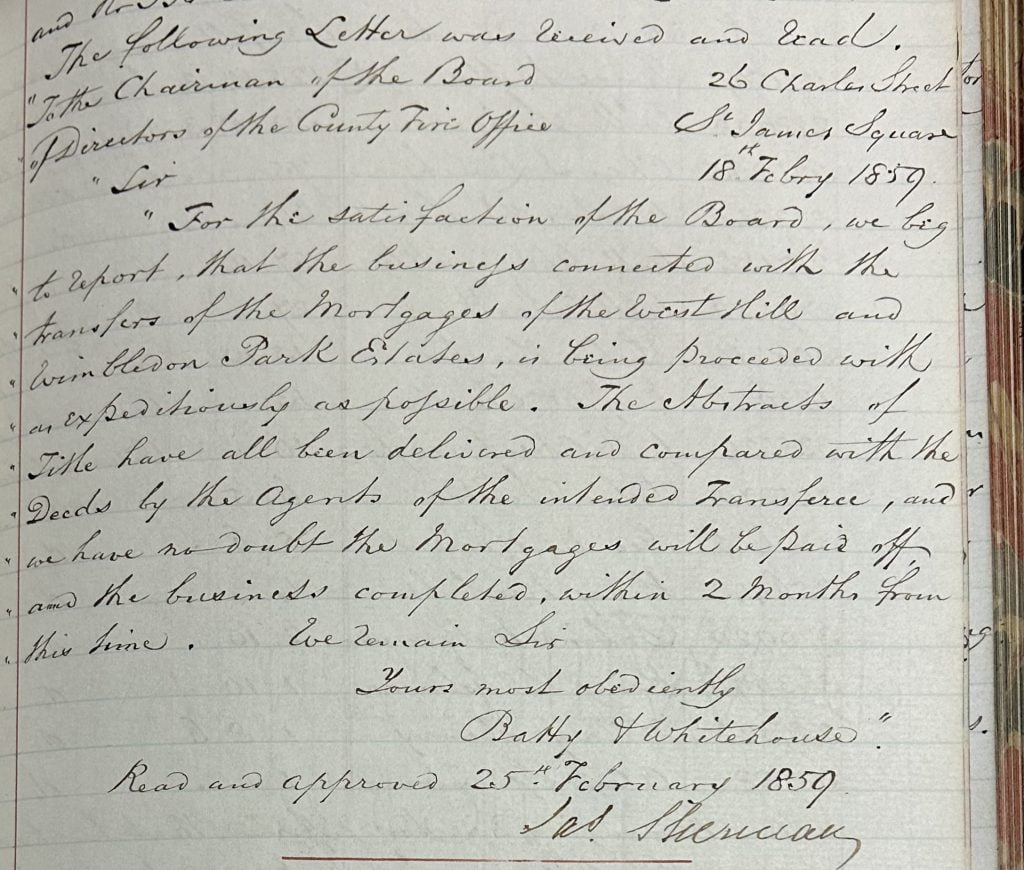 and
The following Letter was received and read.
"To the Chairman of the Board 26 Charles Street
"of Directors of the County Fire Office St. James Square
18th Febry 1859.
"Sir
"For the satisfaction of the Board, we beg
"to report, that the business connected with the
"transfers of the Mortgages of the West Hill and
"Wimbledon Park Estates, is being proceeded with
"as expeditiously as possible. The Abstracts of
"Title have all been delivered and compared with the
"Deeds by the Agents of the intended Transferee, and
"we have no doubt the Mortgages will be paid off,
"and the business completed, within 2 Months from
"this time. We remain Sir
Yours most obediently
Batty & Whitehouse".
Read and approved 25th February 1859.
Jas. Sherman